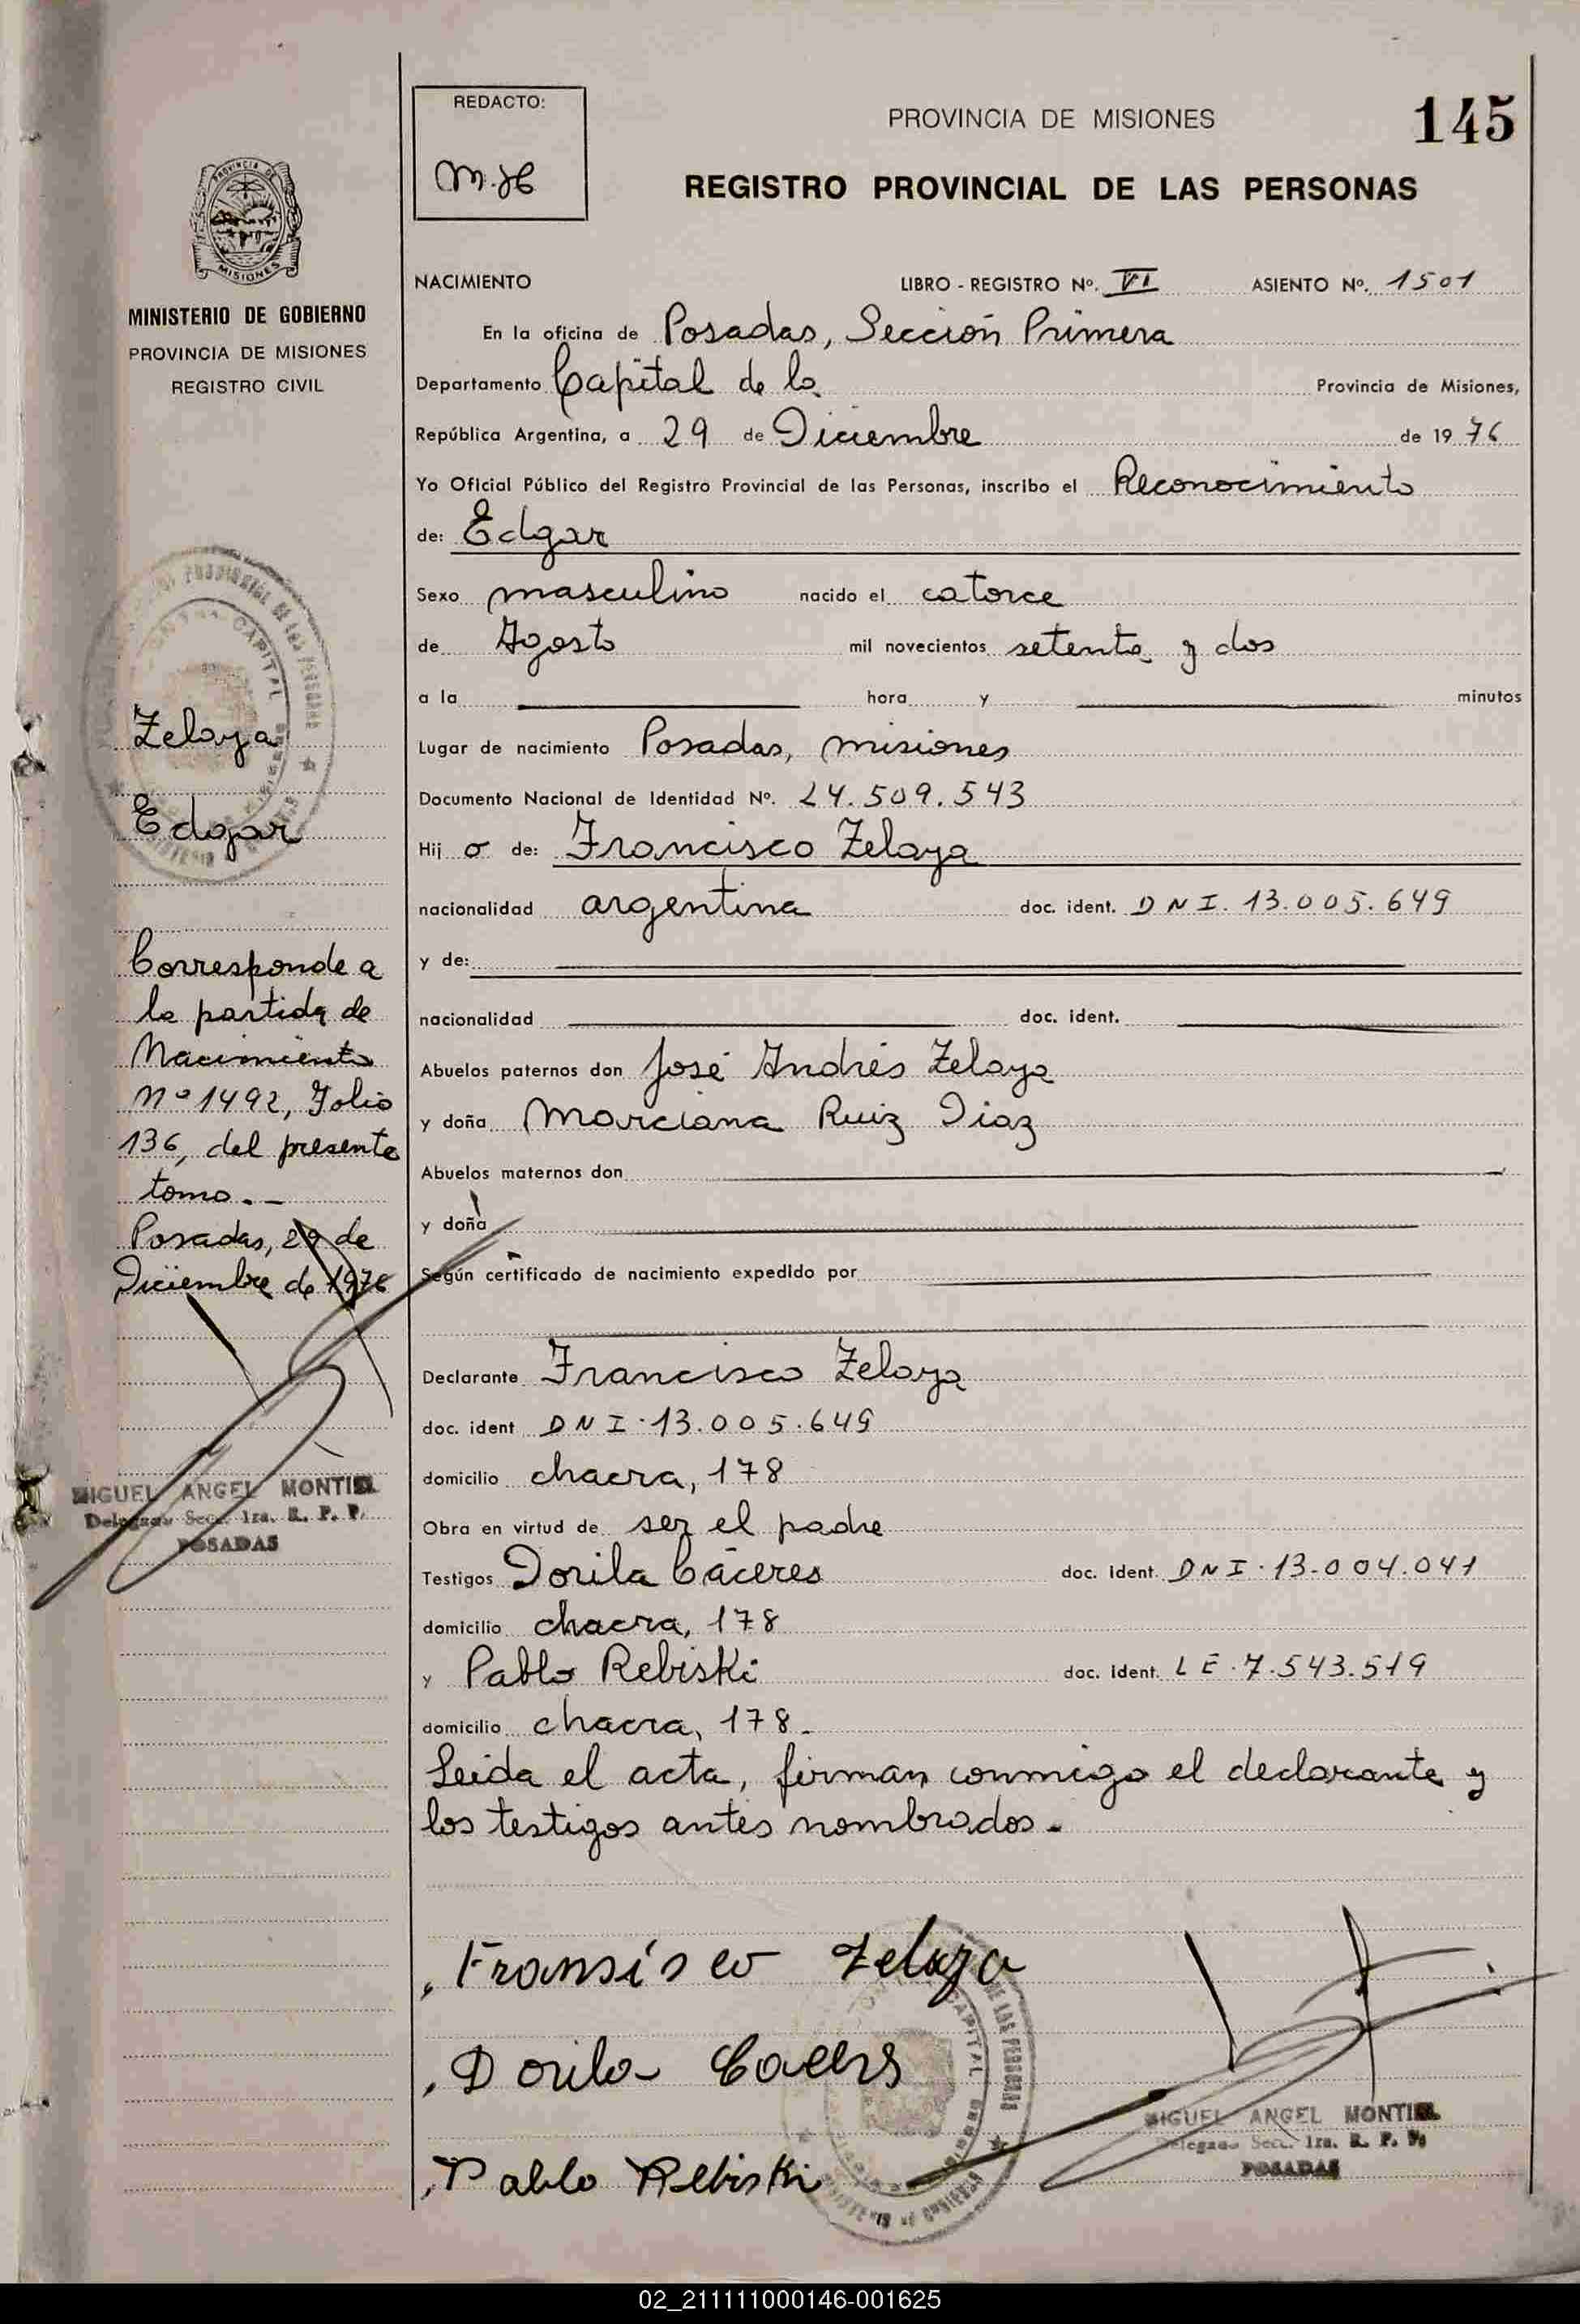 REDACTO:
M.H
PROVINCIA DE MISIONES
145
REGISTRO PROVINCIAL DE LAS PERSONAS
PROVINCIA DE
MISIONES
MINISTERIO DE GOBIERNO
PROVINCIA DE MISIONES
REGISTRO CIVIL
NACIMIENTO LIBRO - REGISTRO Nº. VI ASIENTO Nº. 1501
En la oficina de Posadas, Sección Primera
Departamento Capital de la Provincia de Misiones,
República Argentina, a 29 de Diciembre de 1976
Yo Oficial Público del Registro Provincial de las Personas, inscribo el Reconocimiento
de: Edgar
Sexo masculino nacido el catorce
de Agosto mil novecientos setenta y dos
a la hora y minutos
Lugar de nacimiento Posadas, misiones
Documento Nacional de Identidad Nº. 24.509.543
Hij o de: Francisco Zelaya
nacionalidad argentina doc. ident. DNI. 13.005.649
y de:
nacionalidad doc. ident.
Abuelos paternos don José Andrés Zelaya
y doña Marciana Ruiz Diaz
Abuelos maternos don
y doña
Según certificado de nacimiento expedido por
Declarante Francisco Zelaya
doc. ident DNI. 13.005.649
domicilio chacra, 178
Obra en virtud de ser el padre
Testigos Dorila Cáceres doc. ident. DNI. 13.004.041
domicilio chacra, 178
y Pablo Rebiski doc. ident. LE. 7.543.519
domicilio chacra, 178.
Leida el acta, firman conmigo el declarante y
los testigos antes nombrados.
Zelaya
Edgar
Corresponde a
la partida de
Nacimiento
nº 1492, Folio
136, del presente
tomo.-
Posadas, 29 de
Diciembre de 1976
MIGUEL ANGEL MONTIEL
Delegado Secc. 1ra. R. P. P.
POSADAS
Fransisco Zelaya
Dorila Caceres
Pablo Rebiski
MIGUEL ANGEL MONTIEL
Delegado Secc. 1ra. R. P. P.
POSADAS
02_211111000146-001625